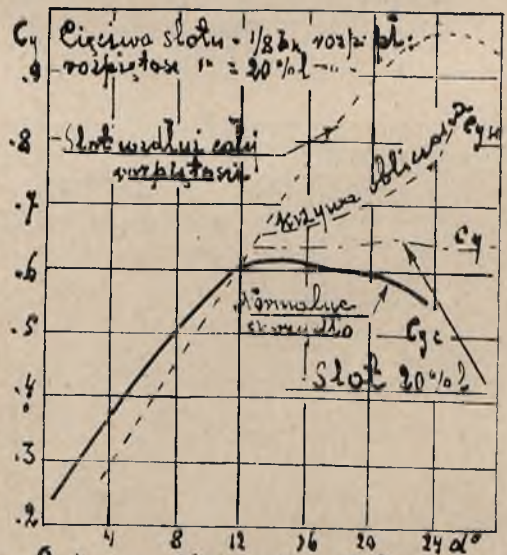 Cy Cięciwa slotu - 1/8 rozpi pł.
rozpiętość " = 20% l
.9
.8
Slot wzdłuż całej
rozpiętości
Krzywa obliczona
Cys
.7
Cy
.6
Normalne
skrzydło
.5
Cyc
Slot 20% l
.4
.3
.2
4 8 12 16 20 24 α°